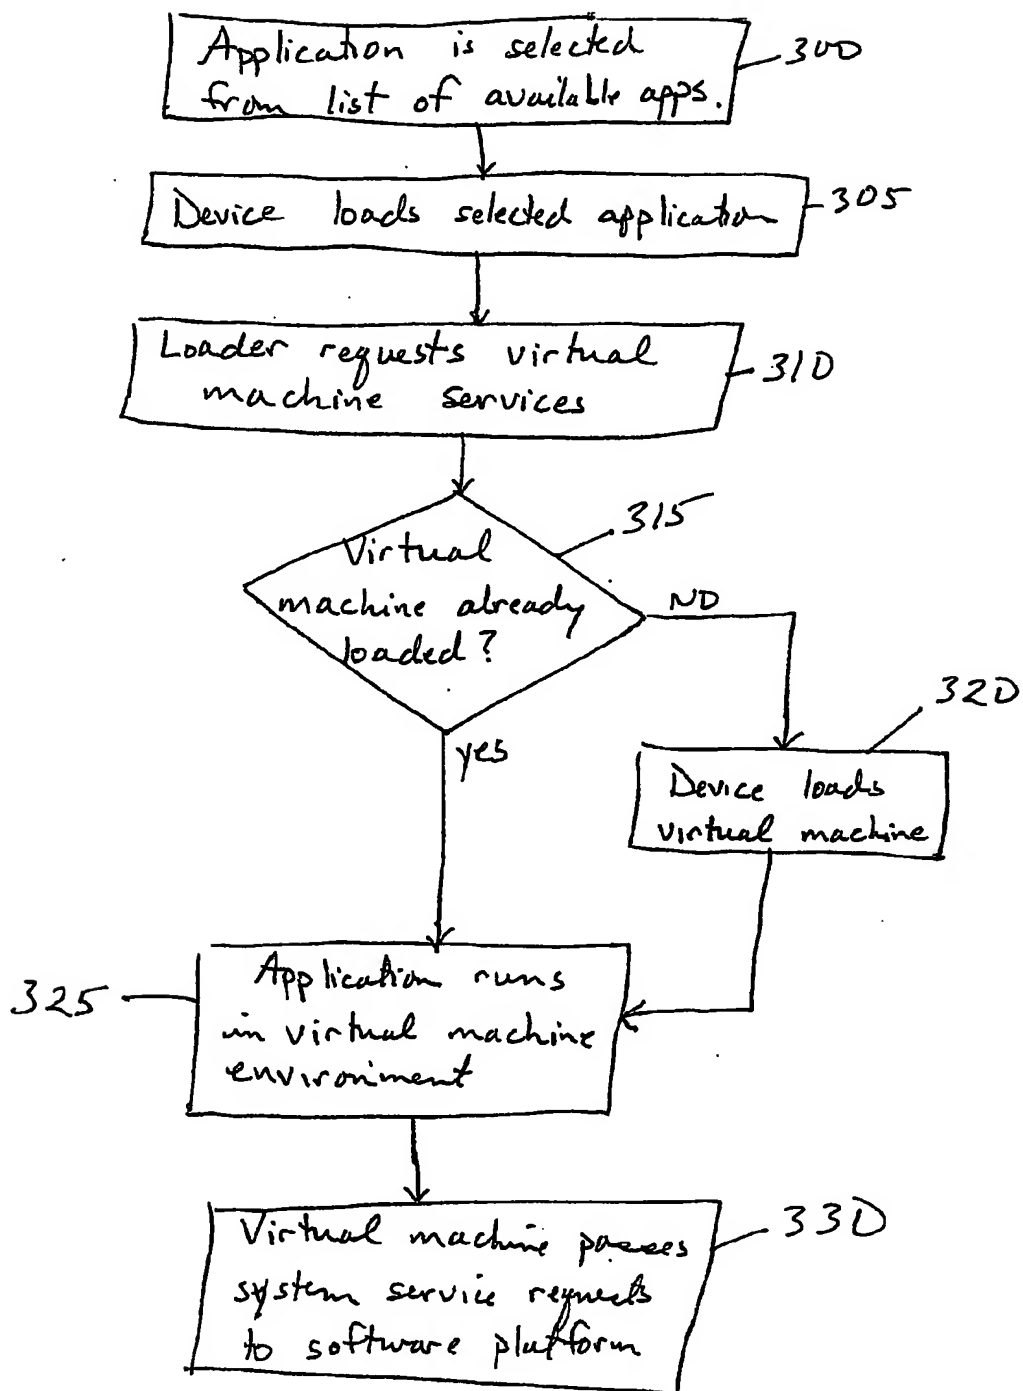 Application is selected
from list of available apps.
300
Device loads selected application
305
Loader requests virtual
machine services
310
Virtual
machine already
loaded?
315
NO
yes
320
Device loads
virtual machine
325
Application runs
in virtual machine
environment
Virtual machine passes
system service requests
to software platform
330